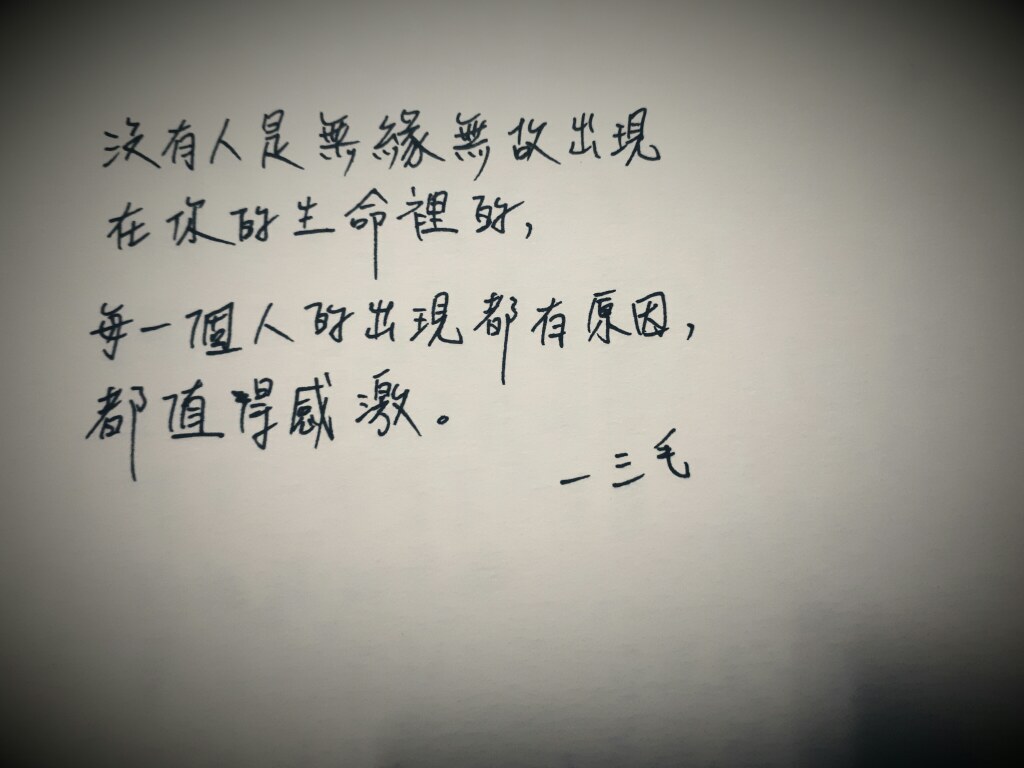 沒有人是無緣無故出現
在你的生命裡的,
每一個人的出現都有原因,
都值得感激。
—三毛